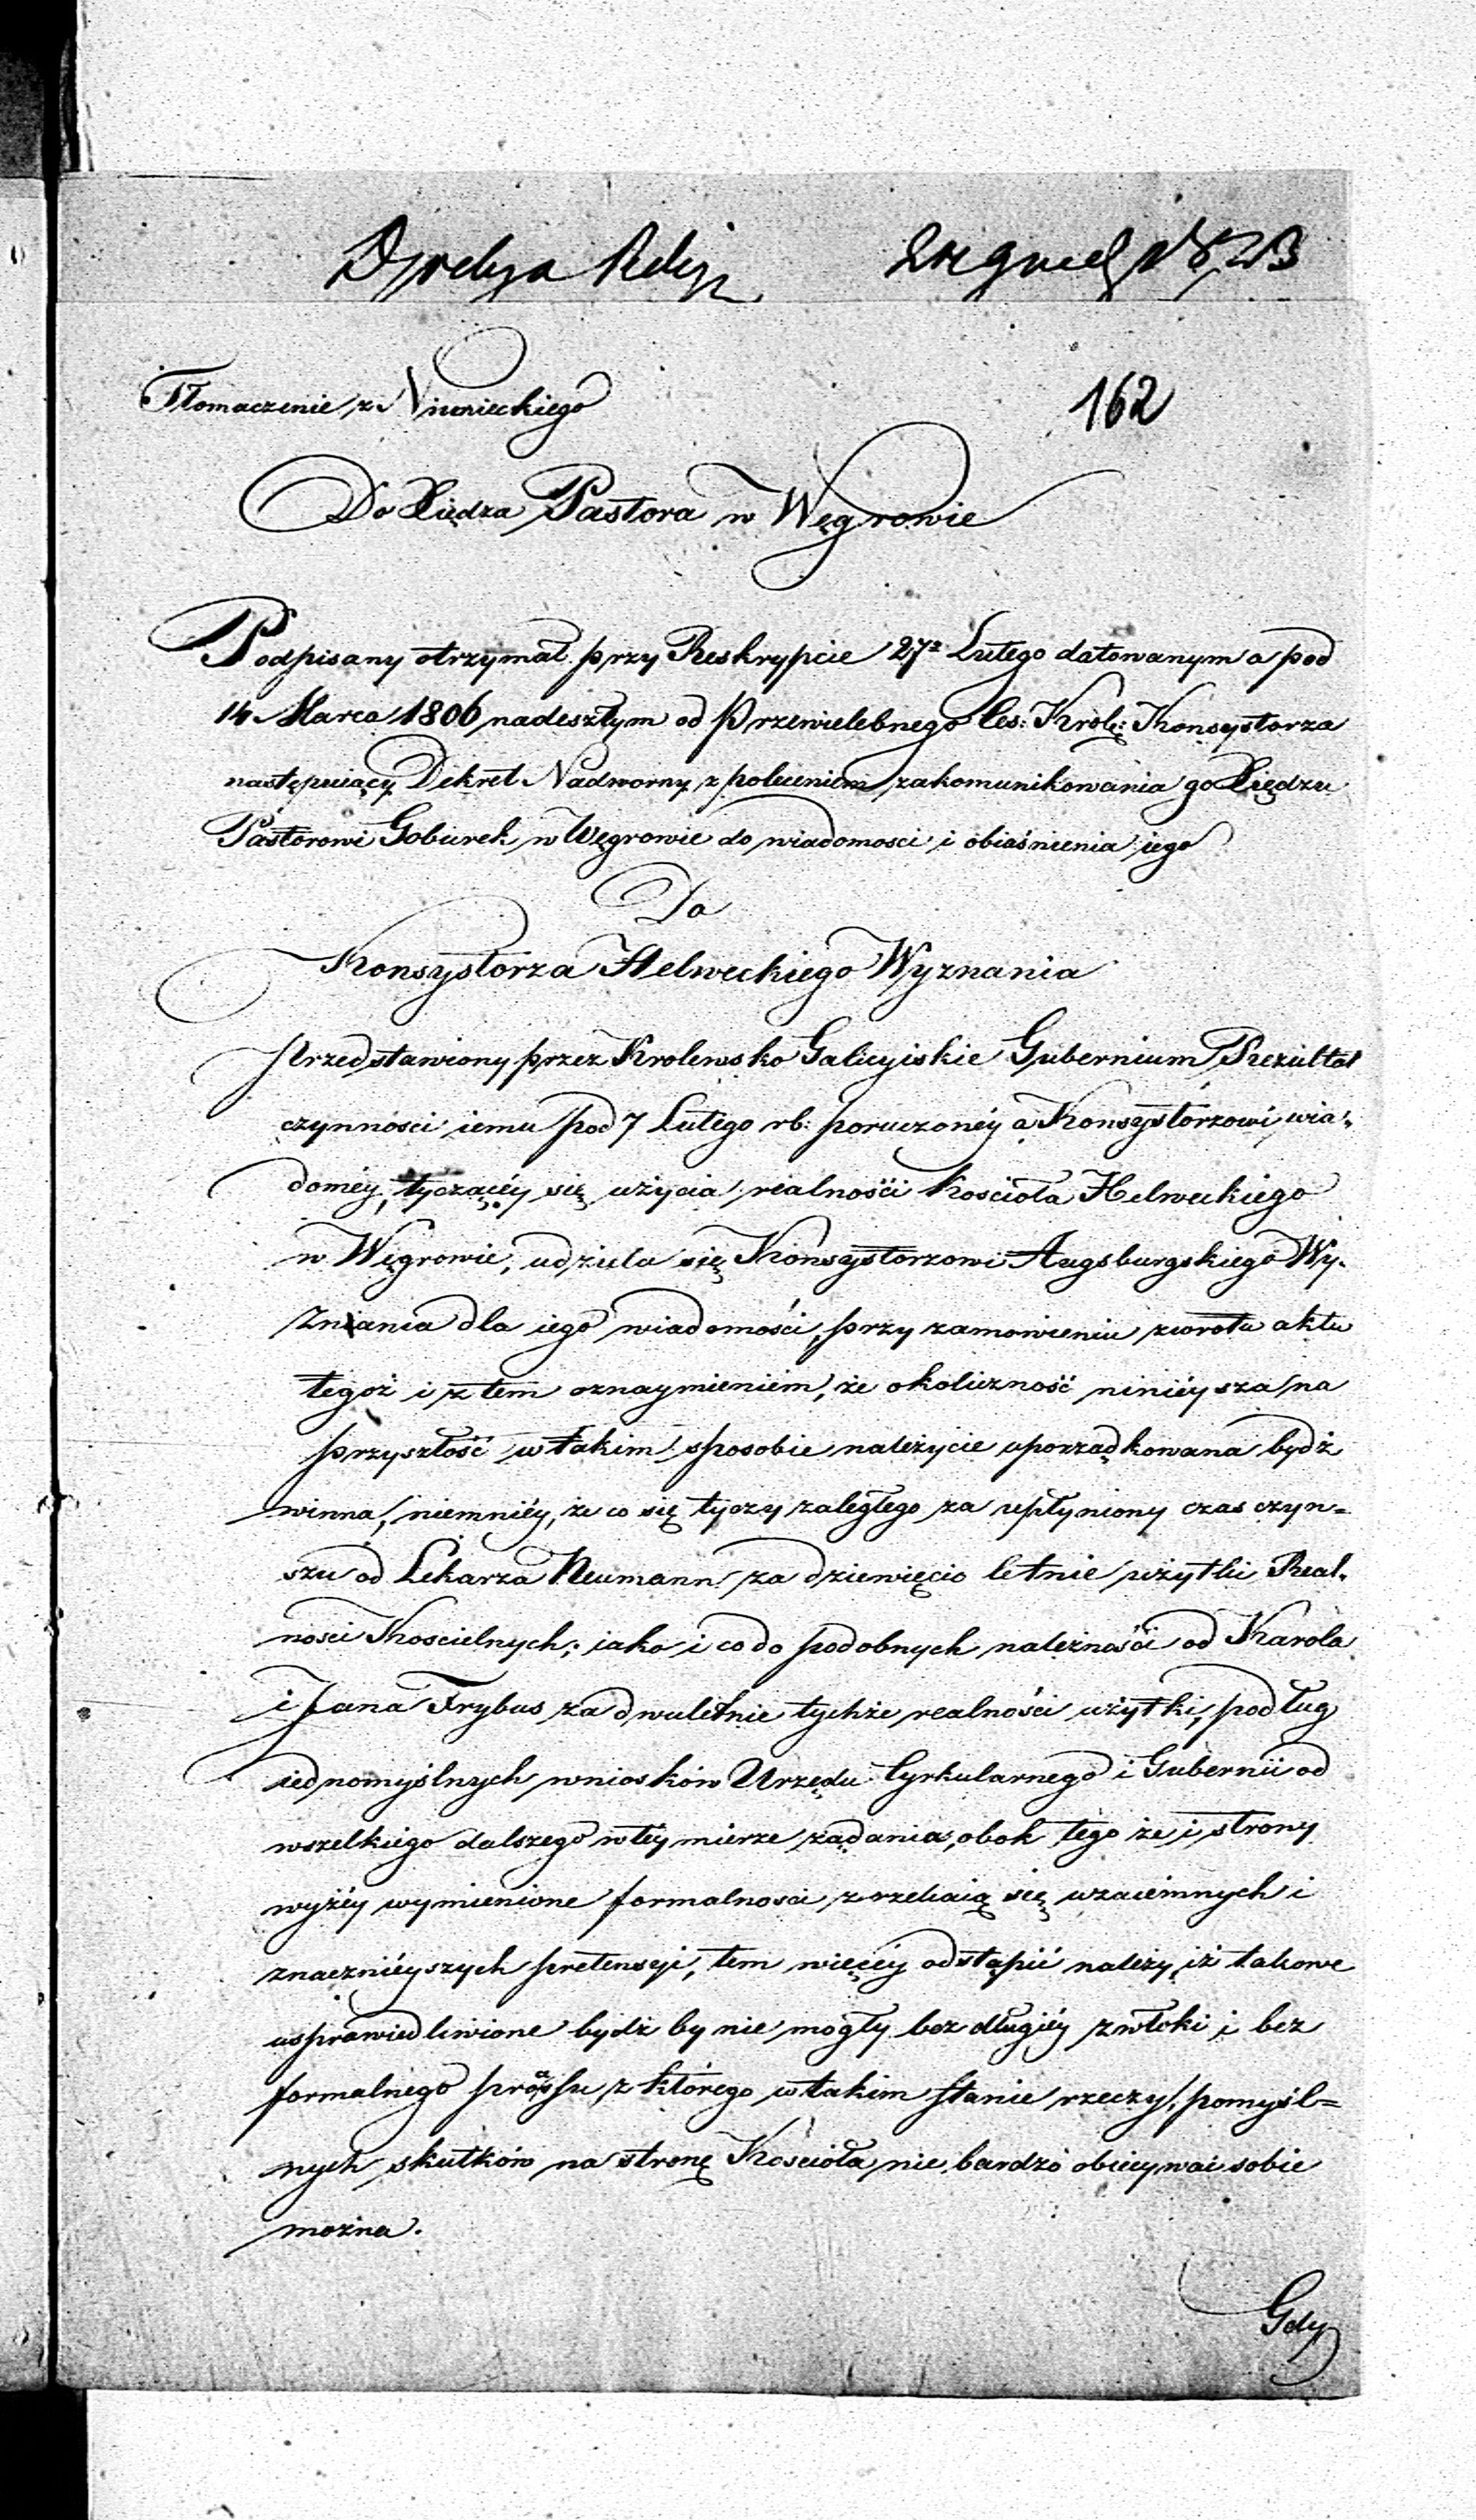 162
Tłomaczenie z Niemieckiego
Do Xiędza Pastora w Węgrowie
Podpisany otrzymał przy Reskrypcie 27º Lutego datowanym a pod
14 Marca 1806 nadeszłym od Przewielebnego Ces: Król: Konsystorza
następuiący Dekret Nadworny z poleceniem zakomunikowania go Xiędzu
Pastorowi Goburek w Węgrowie do wiadomosci i obiaśnienia iego
Do
Konsystorza Helweckiego Wyznania
Przedstawiony przez Krolewsko Galicyiskie Gubernium Rezultat
czynności iemu pod 7 Lutego rb: poruczonéy a Konsystorzowi wia-
doméy, tyczącéy się użycia realnośći Kościoła Helweckiego
w Węgrowie, udziela się Konsystorzowi Augsburgskiego Wy-
znania dla iego wiadomości, przy zamowieniu zwrotu aktu
tegoż i z tem oznaymieniem, że okoliczność niniéysza na
przyszłość w takim sposobie należycie uporządkowana bydź
winna, niemniéy, że co się tyczy zaległego za upłyniony czas czyn=
szu od Lekarza Neumann za dziewięcio letnie użytki Real-
nosci Koscielnych; iako i co do podobnych należnośći od Karola
i Jana Frybus za dwuletnie tychże realności użytki, podług
iednomyślnych wniosków Urzędu Cyrkularnego i Gubernii od
wszelkiego dalszego w téy mierze żądania, obok tego że i strony
wyżéy wymienione formalnosci zrzekaią się wzaiemnych i
znacznieyszych pretensyi, tem więcéy odstąpić należy, iż takowe
usprawiedliwione bydź by nie mogły bez długiéy zwłoki i bez
formalnego processu z którego w takim stanie rzeczy, pomyśl=
nych skutków na stronę Kościoła nie bardzo obiecywać sobie
można.
Gdy